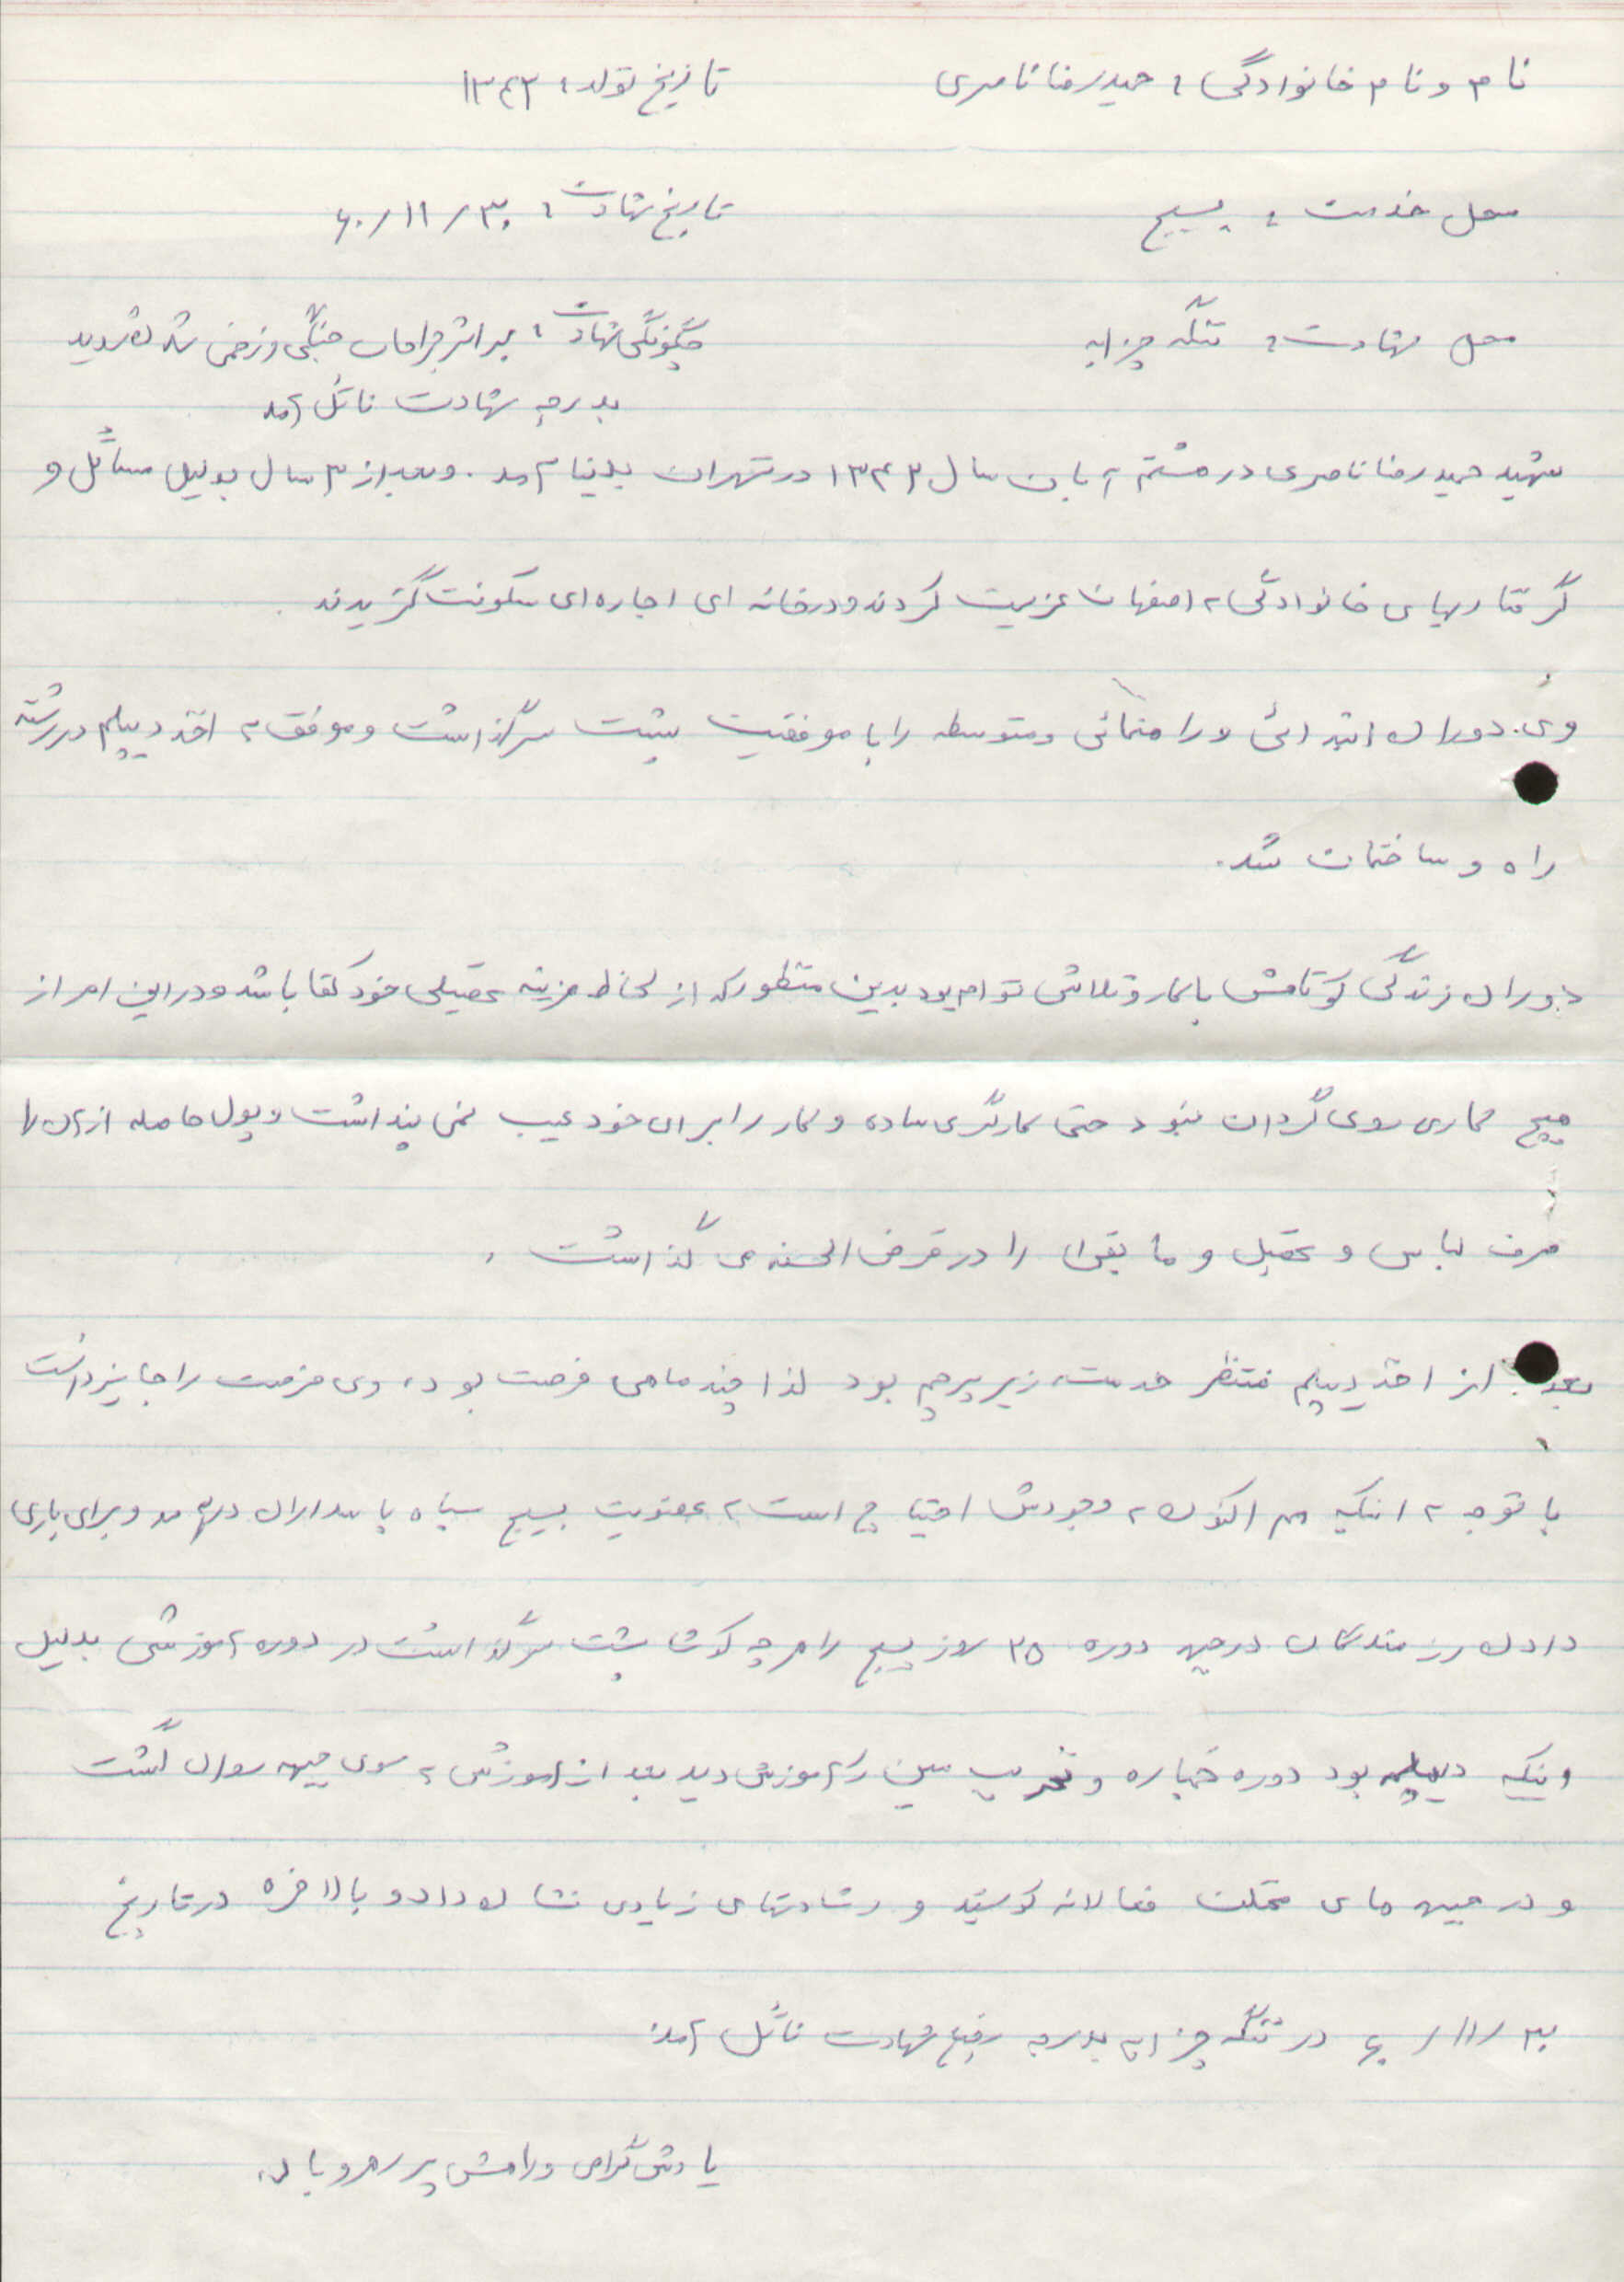 نام و نام خانوادگی : حمیدرضا ناصری تاریخ تولد : ۱۳۴۲
محل خدمت : بسیج تاریخ شهادت : ۶۰/۱۱/۳۰
محل شهادت : تنگه چزابه چگونگی شهادت : بر اثر جراحات جنگی و زخمی شدن شدید
بدرجه شهادت نائل آمد
شهید حمیدرضا ناصری در هشتم آبان سال ۱۳۴۲ در تهران بدنیا آمد . و بعد از ۳ سال بدلیل مسائل و
گرفتاریهای خانوادگی به اصفهان عزیمت کردند و در خانه ای اجاره ای سکونت گزیدند .
وی دوران ابتدائی و راهنمائی و متوسطه را با موفقیت پشت سر گذاشت و موفق به اخذ دیپلم در رشته
راه و ساختمان شد .
دوران زندگی کوتاهش با کار و تلاش توام بود بدین منظور که از لحاظ هزینه تحصیلی خود کفا باشد و در این امر از
هیچ کاری روی گردان نبود حتی کارگری ساده و کار را برای خود عیب نمی پنداشت و پول حاصله از آن را
صرف لباس و تحصیل و ما بقی را در قرض الحسنه می گذاشت .
بعد از اخذ دیپلم منتظر خدمت زیر پرچم بود لذا چند ماهی فرصت بود ، وی فرصت را جایز دانست
با توجه به اینکه هم اکنون به وجودش احتیاج است به عضویت بسیج سپاه پاسداران درآمد و برای یاری
دادن رزمندگان در جبهه دوره ۲۵ روز بسیج را هر چه کوشا پشت سر گذاشت در دوره آموزشی بدلیل
اینکه دیپلمه بود دوره خمپاره و تخریب مین را آموزش دید بعد از آموزش به سوی جبهه روان گشت
و در جبهه های مختلف فعالانه کوشید و رشادتهای زیادی نشان داد و بالاخره در تاریخ
۶۰/۱۱/۳۰ در تنگه چزابه بدرجه رفیع شهادت نائل آمد .
یادش گرامی و راهش پر رهرو باد .